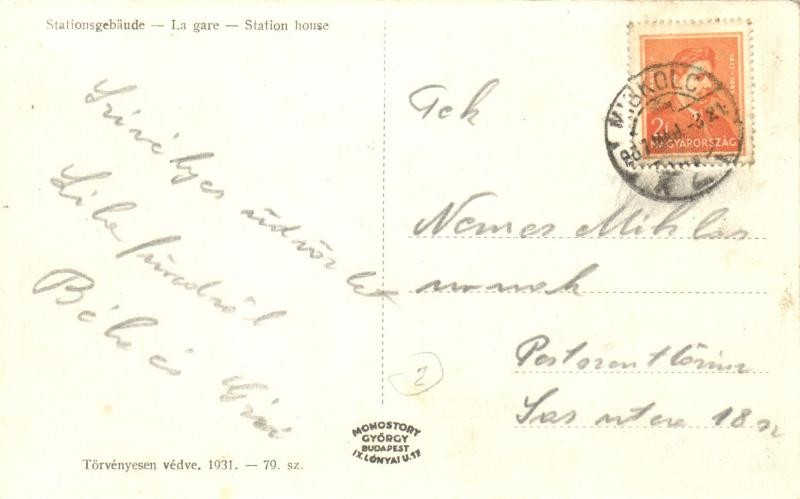 Stationsgebäude — La gare — Station house
Szívélyes üdvözlet
Lilafüredről
Béla és
Törvényesen védve. 1931. — 79. sz.
MONOSTORY
GYÖRGY
BUDAPEST
IX. LÓNYAI U. 17
2f
MAGYARORSZÁG
MISKOLC
Nemes Miklós
urnak
Pestszentlőrinc
Sas utca 18 sz
2